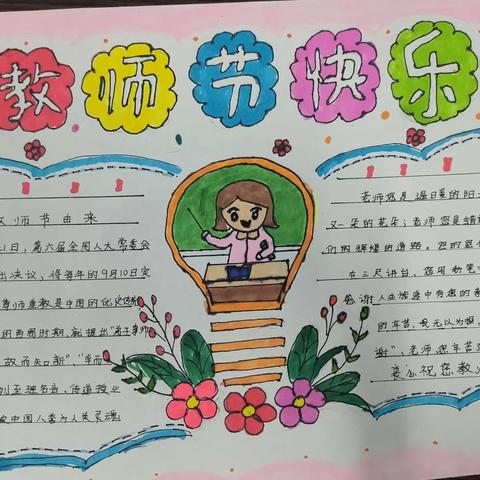 教师节快乐
师节由来
1日,第六届全国人大常委会
决议,将每年的9月10日定
尊师重教是中国的优良传统
的两周时期,就提出"弟子事师
故而知新","学而
列至理名言,传道授业
中国人誉为人类灵魂
老师您是温暖的阳
又一朵的花朵;老师您是蜡
们的辉煌的道路。您的恩
在三尺讲台,您用粉笔
感谢人生旅途中有您的
的辛苦,我无以为报
谢",老师您辛苦
衷心祝您教